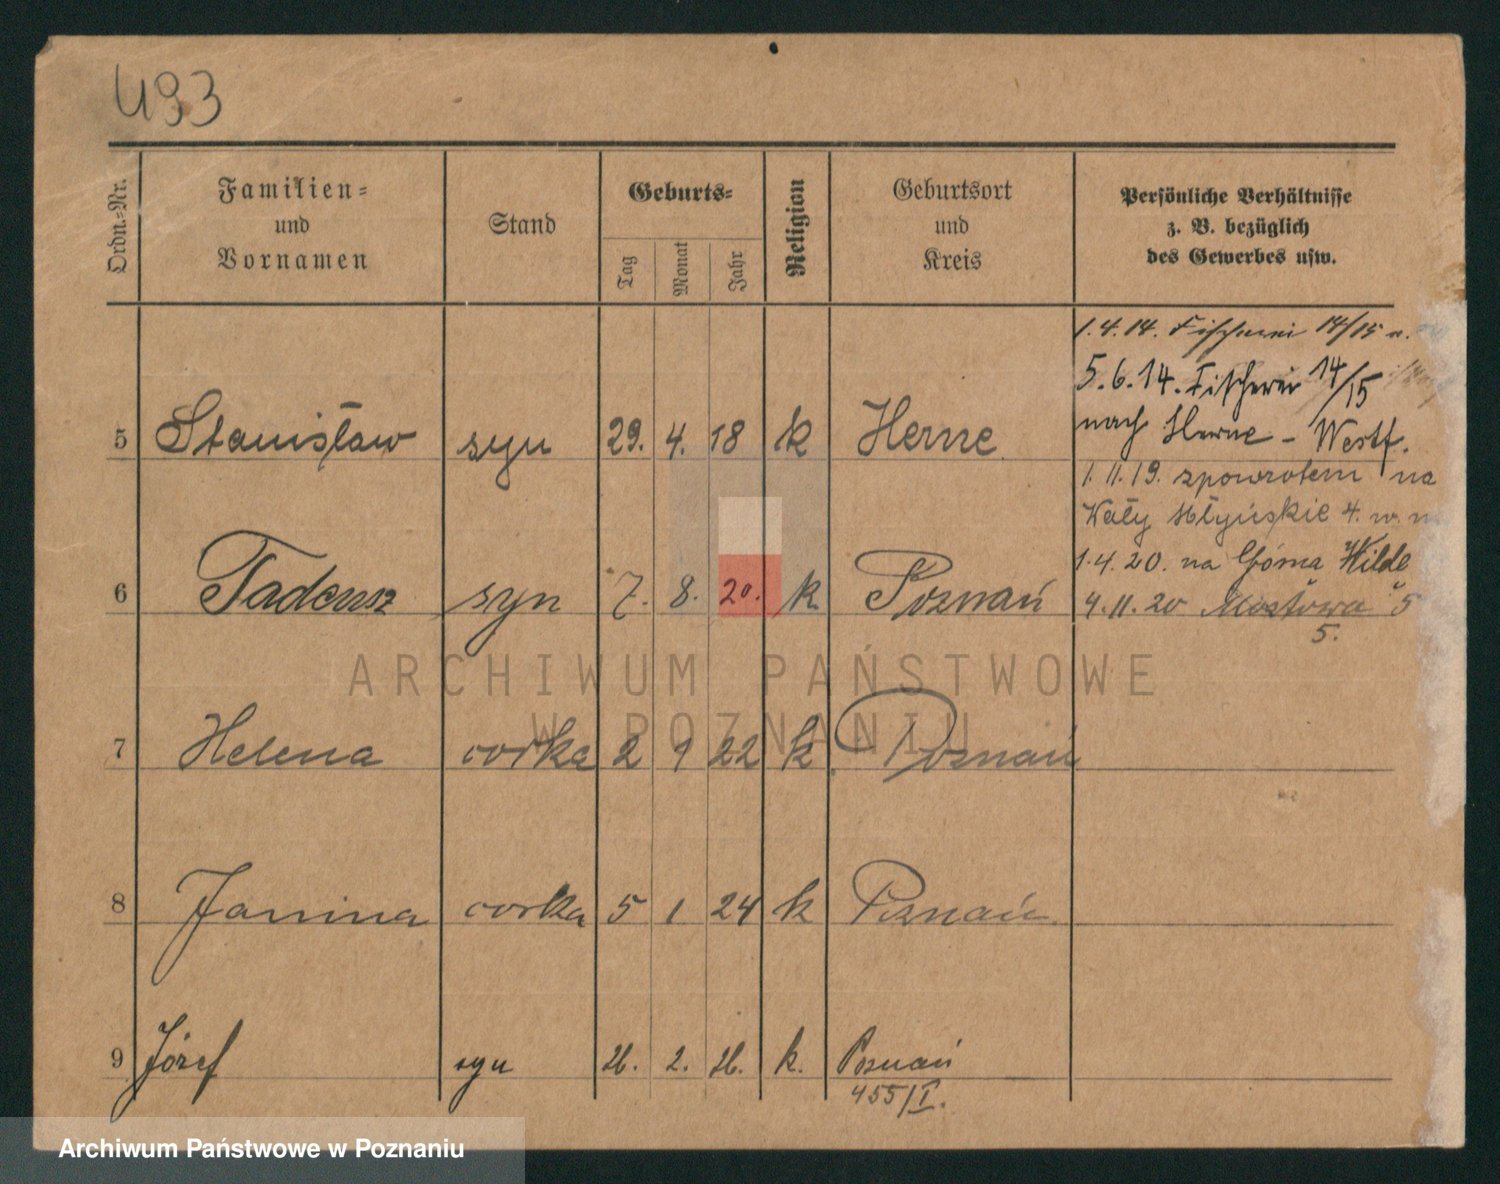 493
Ordn.-Nr.
Familien-
und
Vornamen
Stand
Geburts-
Tag
Monat
Jahr
Religion
Geburtsort
und
Kreis
Persönliche Verhältnisse
z. B. bezüglich
des Gewerbes usw.
1.4.14. Fischerei 14/15 n.
5.6.14. Fischerei 14/15
nach Herne - Westf.
5 Stanisław syn 29. 4. 18 k Herne
1.11.19. zpowrotem na
Wały Młyńskie 4. w.
1.4.20. na Górna Wilde
6 Tadeusz syn 7. 8. 20. k Poznań
4.11.20 Mostowa 5
5.
ARCHIWUM PAŃSTWOWE
W POZNANIU
7 Helena corka 2 9 22 k Poznań
8 Janina corka 5 1 24 k Poznań
9 Józef syn 26. 2. 26. k. Poznań
455/I.
Archiwum Państwowe w Poznaniu